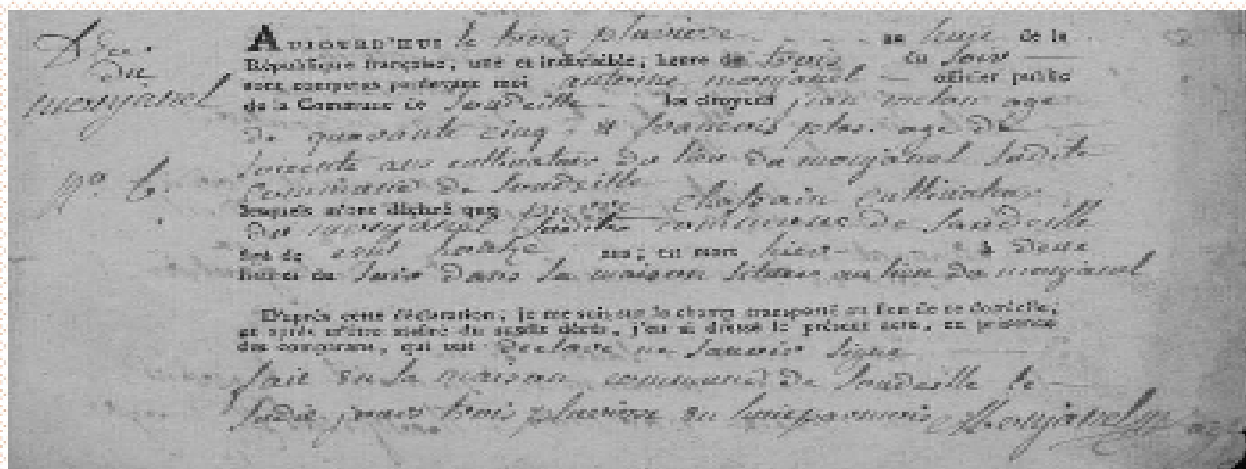 Du
monjanel
No 6
AUJOURD'HUI le trois pluviose an huit de la
République française, une et indivisible, heure de trois du soir
sont comparus pardevant moi antoine monjanel officier public
de la Commune de Soudeille les citoyens jean age
de quarante cinq & francois age de
soixante ans cultivateurs du lieu du monjanel susdite
commune de Soudeille
lesquels m'ont déclaré que pierre chassain cultivateur
du monjanel susdite commune de Soudeille
âgé de ans; est mort hier à deux
heures du soir dans sa maison au lieu du monjanel
D'après cette déclaration, je me suis sur le champ transporté au lieu de ce domicile;
et après m'être assuré du susdit décès, j'en ai dressé le présent acte, en présence
des comparans, qui ont declare ne savoir signe
fait en la maison commune de Soudeille le
susdit jour trois pluviose an huit Monjanel